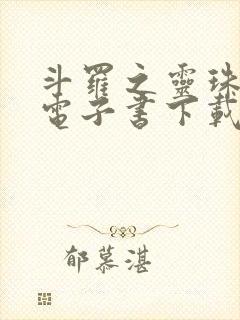 斗羅之靈珠
電子書下載
郁慕湛